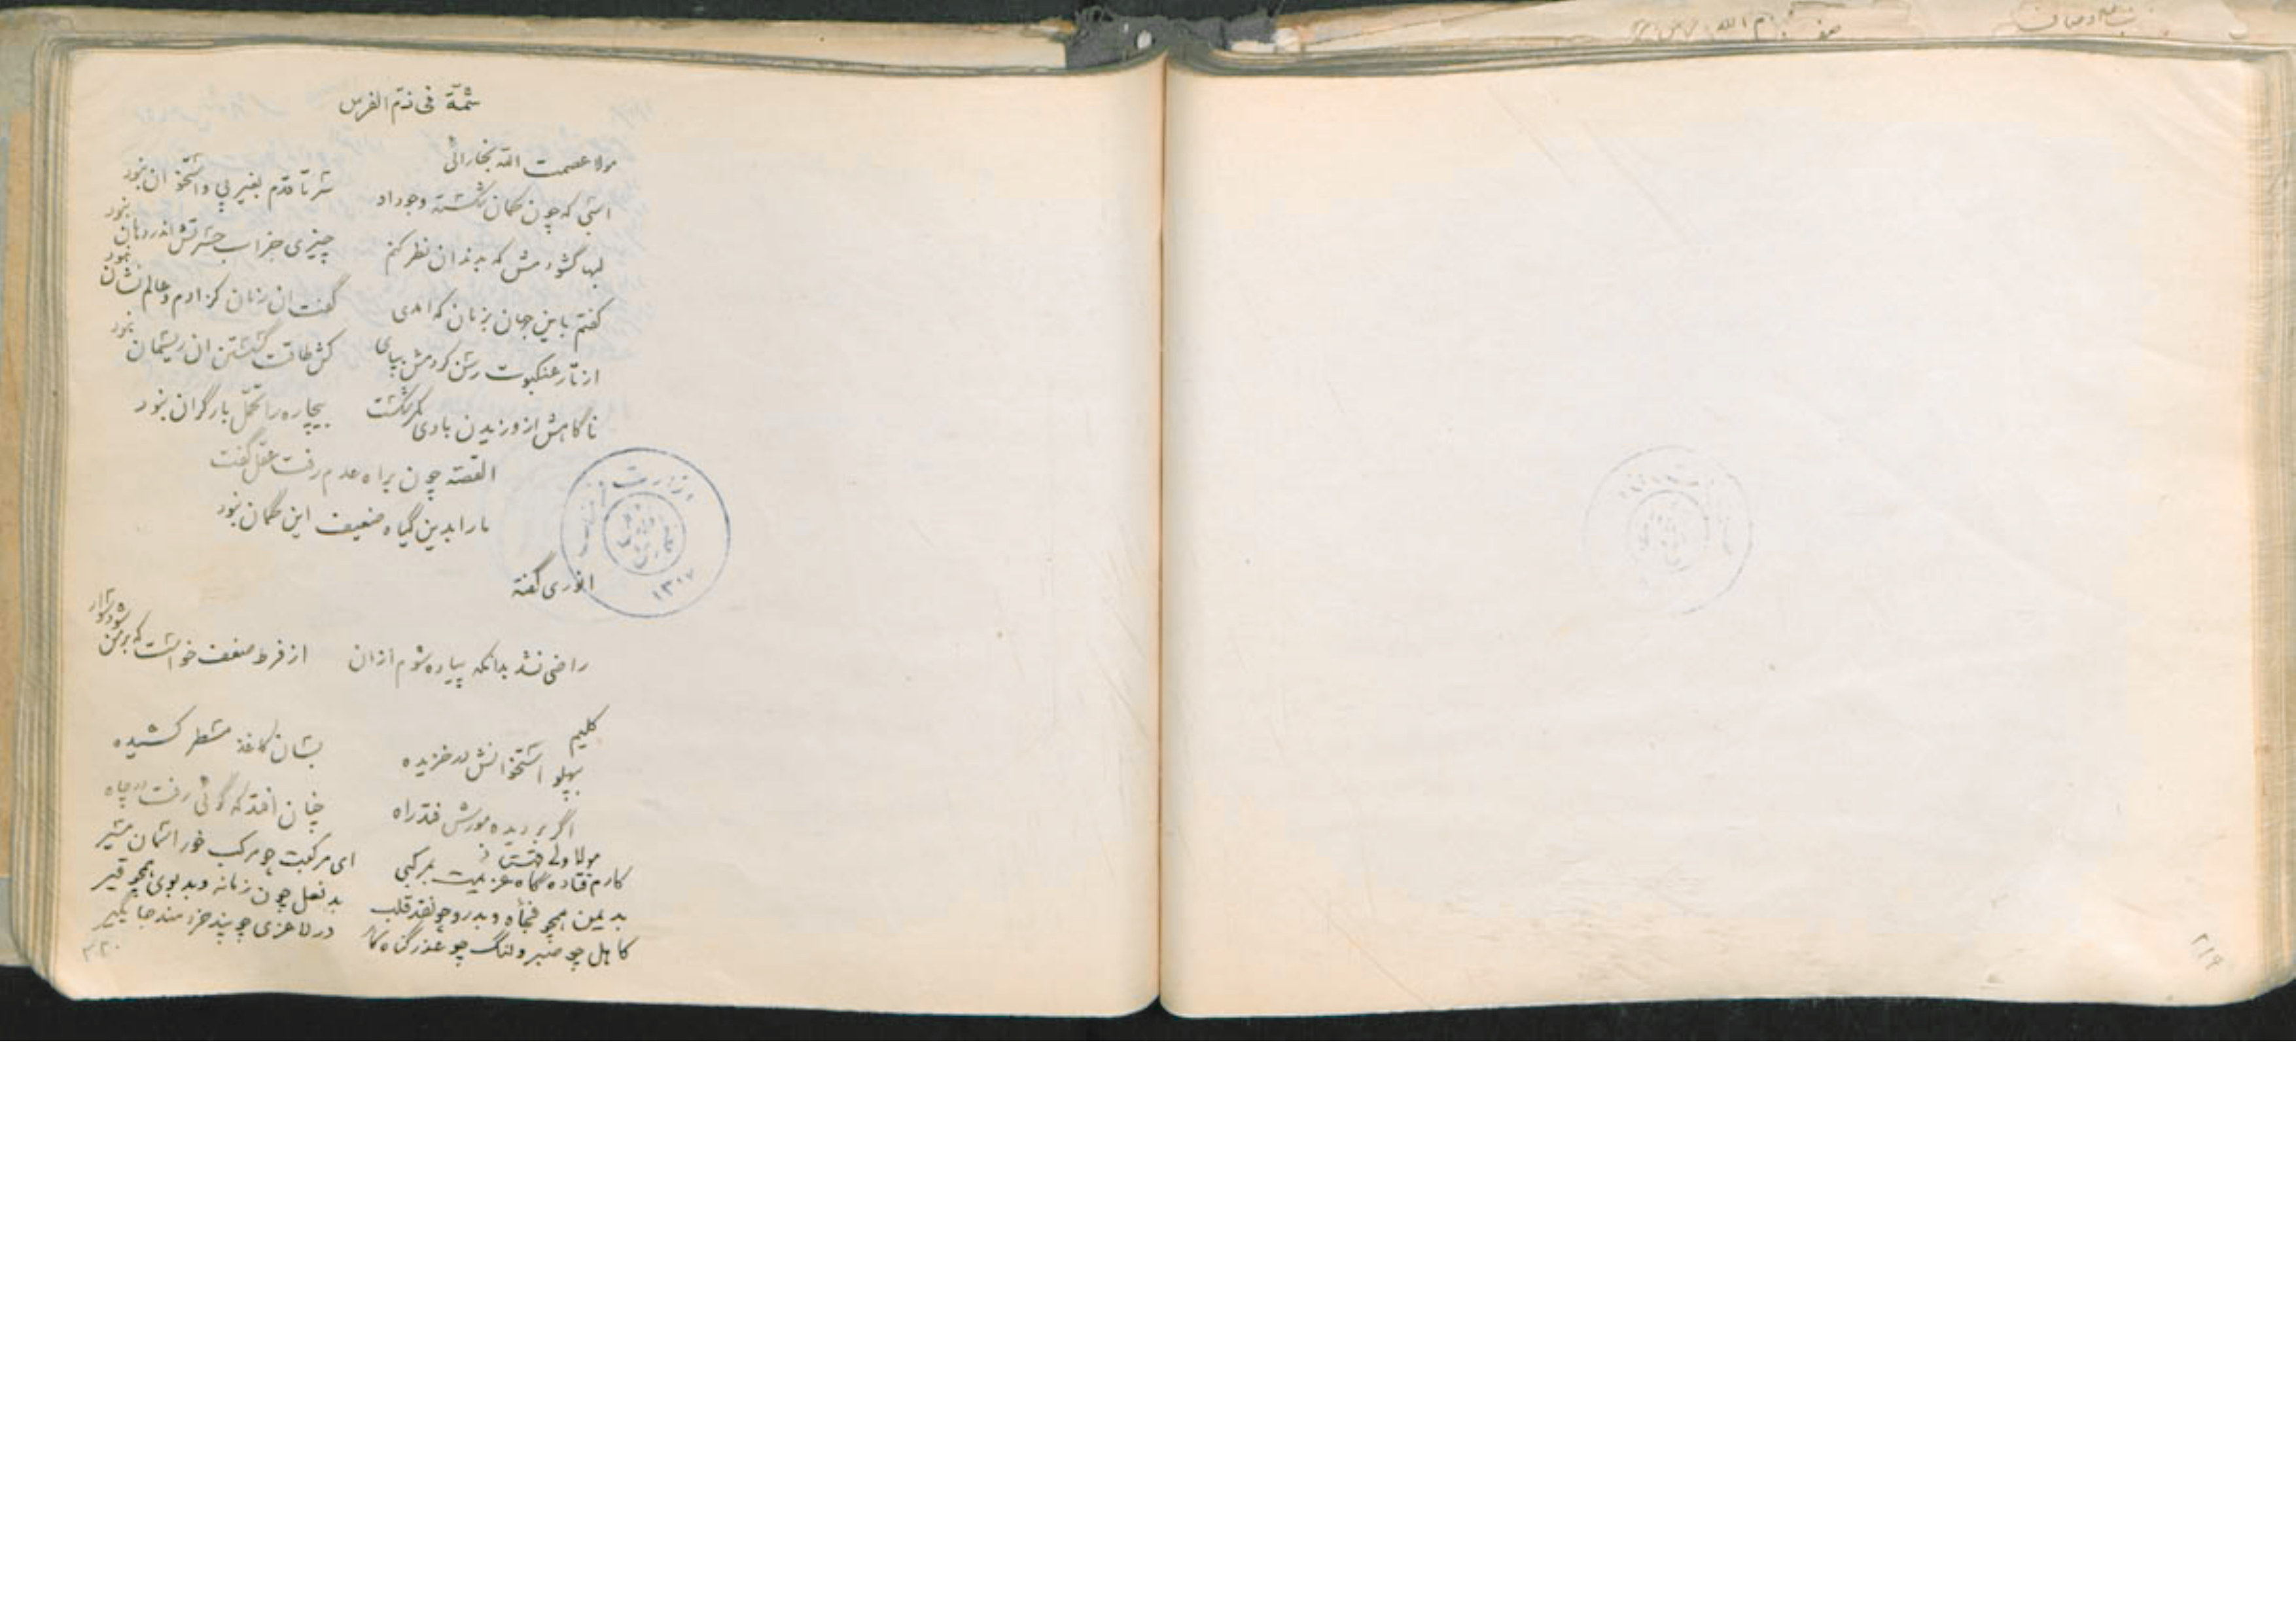 شمّة فی ذمّ الفرس
مولا عصمت الله بخارائی
اسبی که چون کمان شکسته وجود او سر تا قدم بغیر پی و استخوان نبود
لبها گشودمش که بدندان نظر کنم چیزی جز آب حسرتش اندر دهان نبود
گفتم باین جهان بزمان که امدی گفت ان زمان کز ادم و عالم نشان نبود
از تار عنکبوت رسن کردمش بپای کش طاقت گسستن ان ریسمان نبود
ناگاهش از وزیدن بادی کمر شکست بیچاره را تحمّل بار گران نبود
القصّه چون براه عدم رفت عقل گفت
ما را بدین گیاه ضعیف این گمان نبود
انوری گفته
راضی نشد بدانکه پیاده شوم ازان از فرط ضعف خواست که بر من شود سوار
کلیم
بپهلو استخوانش در خزیده بسان کاغذ مسطر کشیده
اگر بر دیده مورش فتد راه چنان افتد که گوئی رفت در چاه
مولا ولی
کارم فتاده گاه عزیمت بمرکبی ای مرکبت چو مرکب خور اسمان مسیر
بد یمن همچو فجأه و بدرو چو نقد قلب بد نعل چون زمانه و بد بوی همچو قیر
کاهل چو صبر و لنگ چو عذر گناه کار در لاغری چو پند خردمند جایگیر
۳۲۰
وزارت
۱۳۰۷
۲۱۹